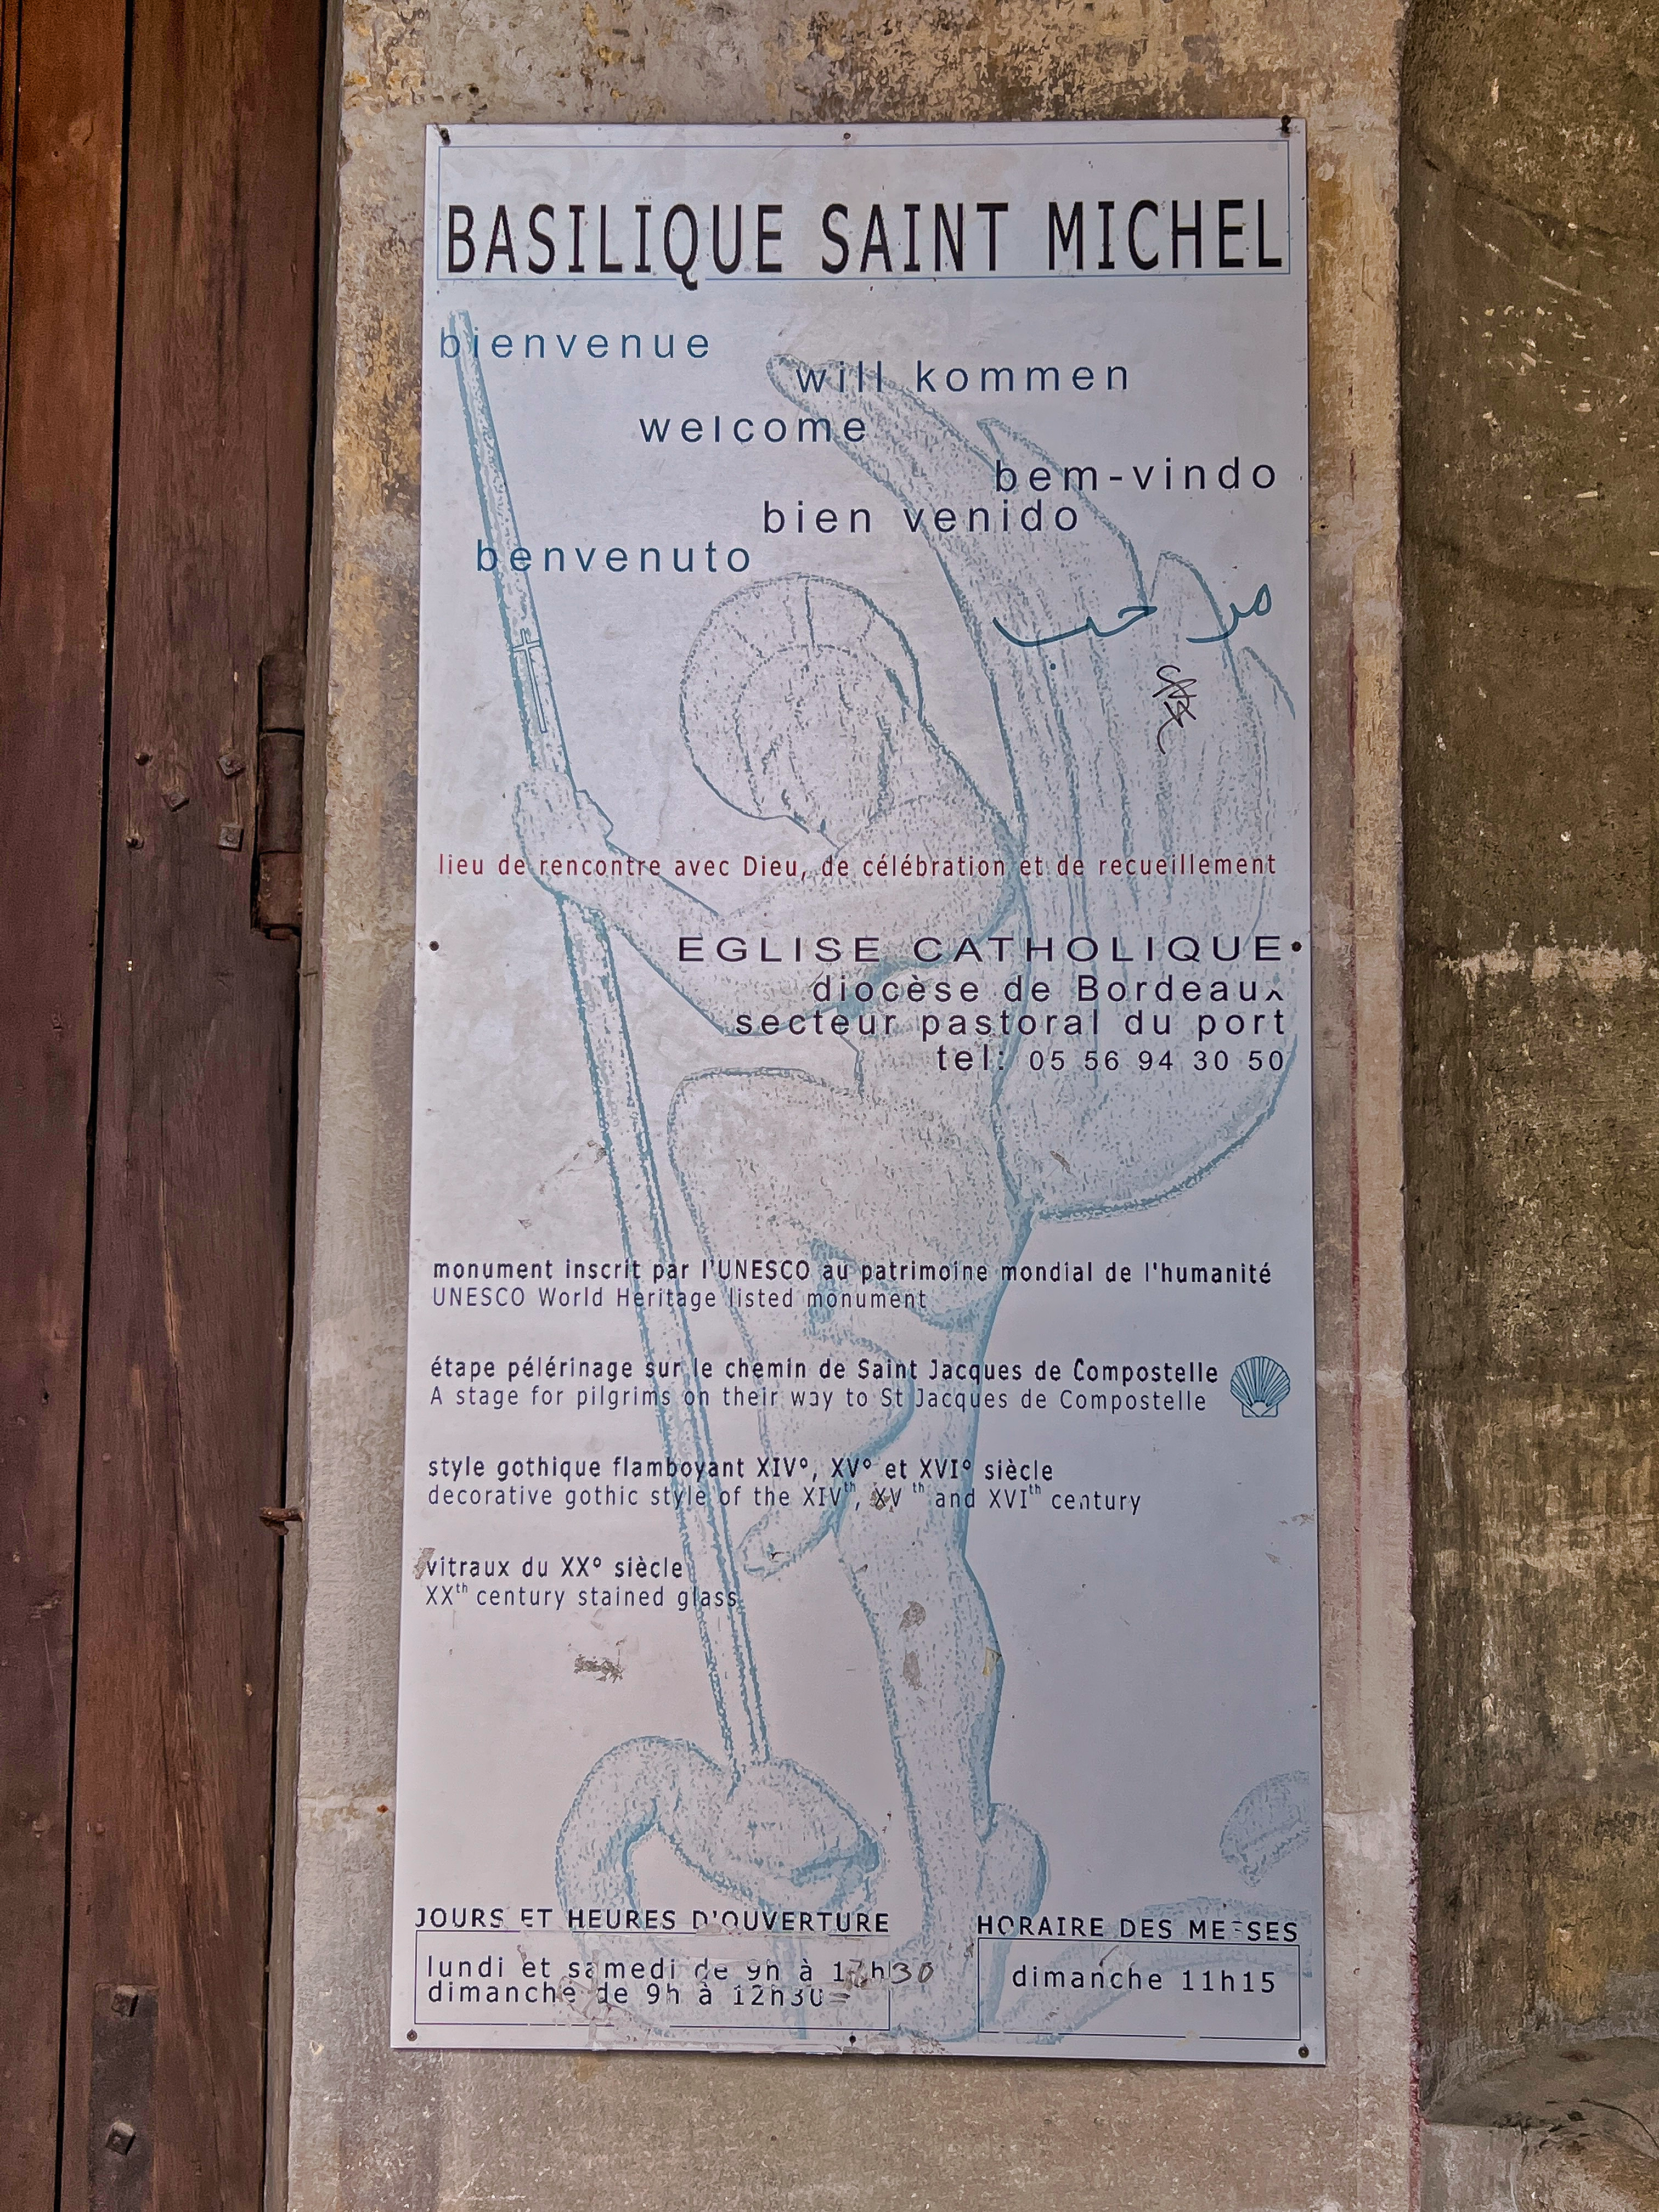 BASILIQUE SAINT MICHEL
bienvenue
will kommen
welcome
bem-vindo
bien venido
benvenuto
مرحب
lieu de rencontre avec Dieu, de célébration et de recueillement
EGLISE CATHOLIQUE
diocèse de Bordeaux
secteur pastoral du port
tel: 05 56 94 30 50
monument inscrit par l'UNESCO au patrimoine mondial de l'humanité
UNESCO World Heritage listed monument
étape pélérinage sur le chemin de Saint Jacques de Compostelle
A stage for pilgrims on their way to St Jacques de Compostelle
style gothique flamboyant XIV°, XV° et XVI° siècle
decorative gothic style of the XIVth, XV th and XVIth century
vitraux du XX° siècle
XXth century stained glass
JOURS ET HEURES D'OUVERTURE
lundi et samedi de 9h à 17h30
dimanche de 9h à 12h30
HORAIRE DES MESSES
dimanche 11h15